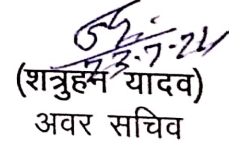 23-7-21
(शत्रुहन यादव)
अवर सचिव